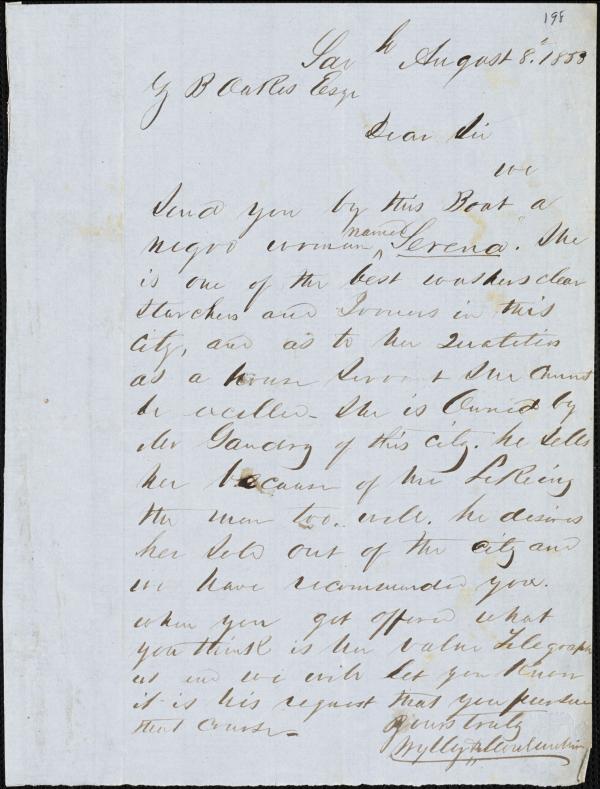 198
Sav h August 8th 1853
Z B Oakes Esqr
Dear Sir
we
Send you by this Boat a
negro woman named "Serena". She
is one of the best washers clear
starchers and Ironers in this
city, and as to her Qualities
as a house servant she cannot
be excelled - She is Owned by
Mr Gaudry of this city. he sells
her because of her Likeing
the men too well. he desires
her sold out of the city and
we have recommended you.
when you get offered what
you think is her value Telegraph
us and we will let you Know
it is his request that you pursue
that course -
Yours truly
Wylly &